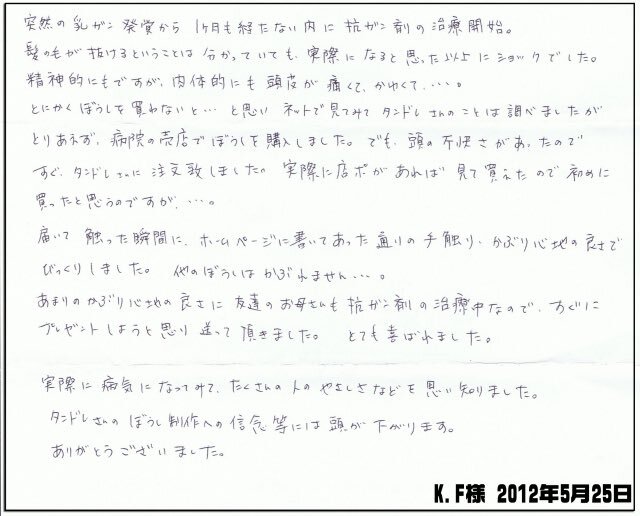 突然の乳ガン発覚から 1ヶ月も経たない内に抗ガン剤の治療開始。
髪の毛が抜けるということは分かっていても、実際になると思った以上にショックでした。
精神的にもですが、肉体的にも頭皮が痛くて、かゆくて・・・。
とにかくぼうしを買わないと… と思い ネットで見てみて タンドレさんのことは調べましたが
とりあえず、病院の売店でぼうしを購入しました。でも、頭の不快さがあったので
すぐ、タンドレさんに注文致しました。実際に店ポがあれば見て買えたので初めに
買ったと思うのですが・・・。
届いて 触った瞬間に、ホームページに書いてあった通りの手触り、かぶり心地の良さで
びっくりしました。 他のぼうしはかぶれません・・・。
あまりのかぶり心地の良さに 友達のお母さんも抗ガン剤の治療中なので、すぐに
プレゼントしようと思い 送って頂きました。 とても喜ばれました。
実際に病気になってみて、たくさんの人のやさしさなどを思い知りました。
タンドレさんのぼうし制作への信念等には頭が下がります。
ありがとうございました。
K.F様 2012年5月25日